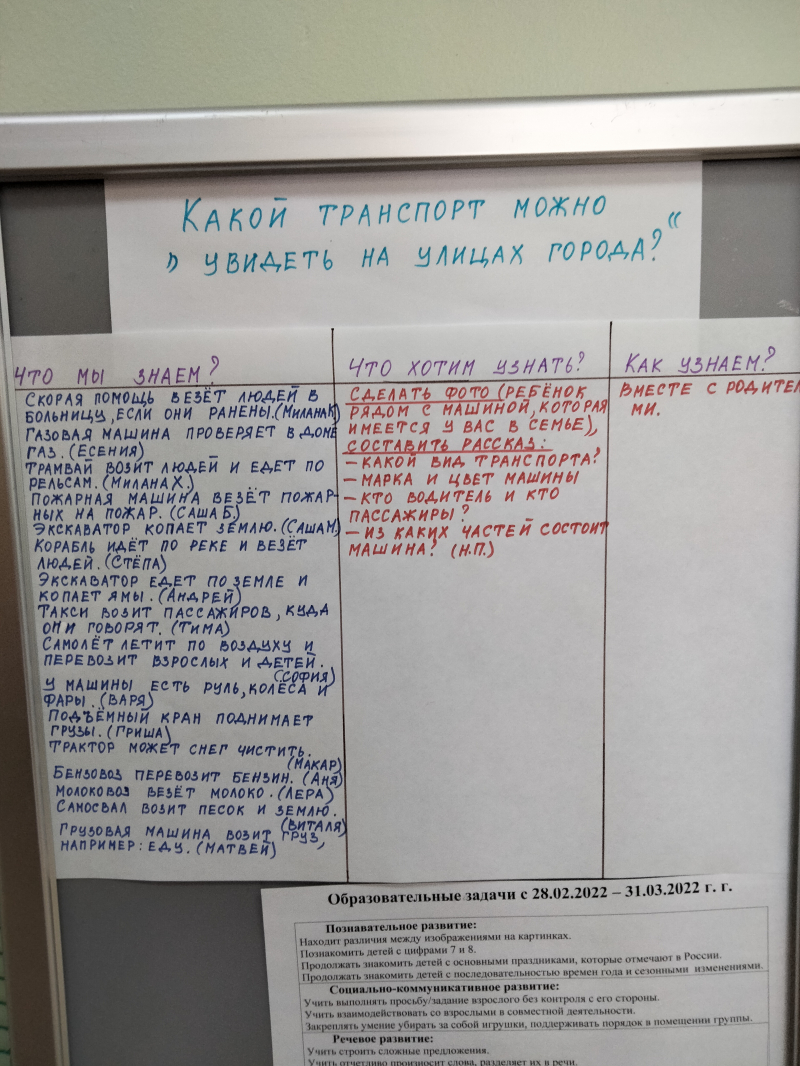 КАКОЙ ТРАНСПОРТ МОЖНО
" УВИДЕТЬ НА УЛИЦАХ ГОРОДА?"
ЧТО МЫ ЗНАЕМ?
СКОРАЯ ПОМОЩЬ ВЕЗЁТ ЛЮДЕЙ В
БОЛЬНИЦУ, ЕСЛИ ОНИ РАНЕНЫ. (МИЛАНА К)
ГАЗОВАЯ МАШИНА ПРОВЕРЯЕТ В ДОМЕ
ГАЗ. (ЕСЕНИЯ)
ТРАМВАЙ ВОЗИТ ЛЮДЕЙ И ЕДЕТ ПО
РЕЛЬСАМ. (МИЛАНА Х.)
ПОЖАРНАЯ МАШИНА ВЕЗЁТ ПОЖАР-
НЫХ НА ПОЖАР. (САША Б.)
ЭКСКАВАТОР КОПАЕТ ЗЕМЛЮ. (САША М)
КОРАБЛЬ ИДЁТ ПО РЕКЕ И ВЕЗЁТ
ЛЮДЕЙ. (СТЁПА)
ЭКСКАВАТОР ЕДЕТ ПО ЗЕМЛЕ И
КОПАЕТ ЯМЫ. (АНДРЕЙ)
ТАКСИ ВОЗИТ ПАССАЖИРОВ, КУДА
ОНИ ГОВОРЯТ. (ТИМА)
САМОЛЁТ ЛЕТИТ ПО ВОЗДУХУ И
ПЕРЕВОЗИТ ВЗРОСЛЫХ И ДЕТЕЙ.
(СОФИЯ)
У МАШИНЫ ЕСТЬ РУЛЬ, КОЛЁСА И
ФАРЫ. (ВАРЯ)
ПОДЪЁМНЫЙ КРАН ПОДНИМАЕТ
ГРУЗЫ. (ГРИША)
ТРАКТОР МОЖЕТ СНЕГ ЧИСТИТЬ.
(МАКАР)
БЕНЗОВОЗ ПЕРЕВОЗИТ БЕНЗИН. (АНЯ)
МОЛОКОВОЗ ВЕЗЁТ МОЛОКО. (ЛЕРА)
САМОСВАЛ ВОЗИТ ПЕСОК И ЗЕМЛЮ.
(ВИТАЛЯ)
ГРУЗОВАЯ МАШИНА ВОЗИТ ГРУЗ,
НАПРИМЕР: ЕДУ. (МАТВЕЙ)
ЧТО ХОТИМ УЗНАТЬ?
СДЕЛАТЬ ФОТО (РЕБЁНОК
РЯДОМ С МАШИНОЙ, КОТОРАЯ
ИМЕЕТСЯ У ВАС В СЕМЬЕ),
СОСТАВИТЬ РАССКАЗ:
– КАКОЙ ВИД ТРАНСПОРТА?
– МАРКА И ЦВЕТ МАШИНЫ
– КТО ВОДИТЕЛЬ И КТО
ПАССАЖИРЫ?
– ИЗ КАКИХ ЧАСТЕЙ СОСТОИТ
МАШИНА? (Н.П.)
КАК УЗНАЕМ?
ВМЕСТЕ С РОДИТЕЛ
МИ.
Образовательные задачи с 28.02.2022 – 31.03.2022 г. г.
Познавательное развитие:
Находит различия между изображениями на картинках.
Познакомить детей с цифрами 7 и 8.
Продолжать знакомить детей с основными праздниками, которые отмечают в России.
Продолжать знакомить детей с последовательностью времен года и сезонными изменениями.
Социально-коммуникативное развитие:
Учить выполнять просьбу/задание взрослого без контроля с его стороны.
Учить взаимодействовать со взрослыми в совместной деятельности.
Закреплять умение убирать за собой игрушки, поддерживать порядок в помещении группы.
Речевое развитие:
Учить строить сложные предложения.
Учить отчетливо произносит слова, разделяет их в речи.